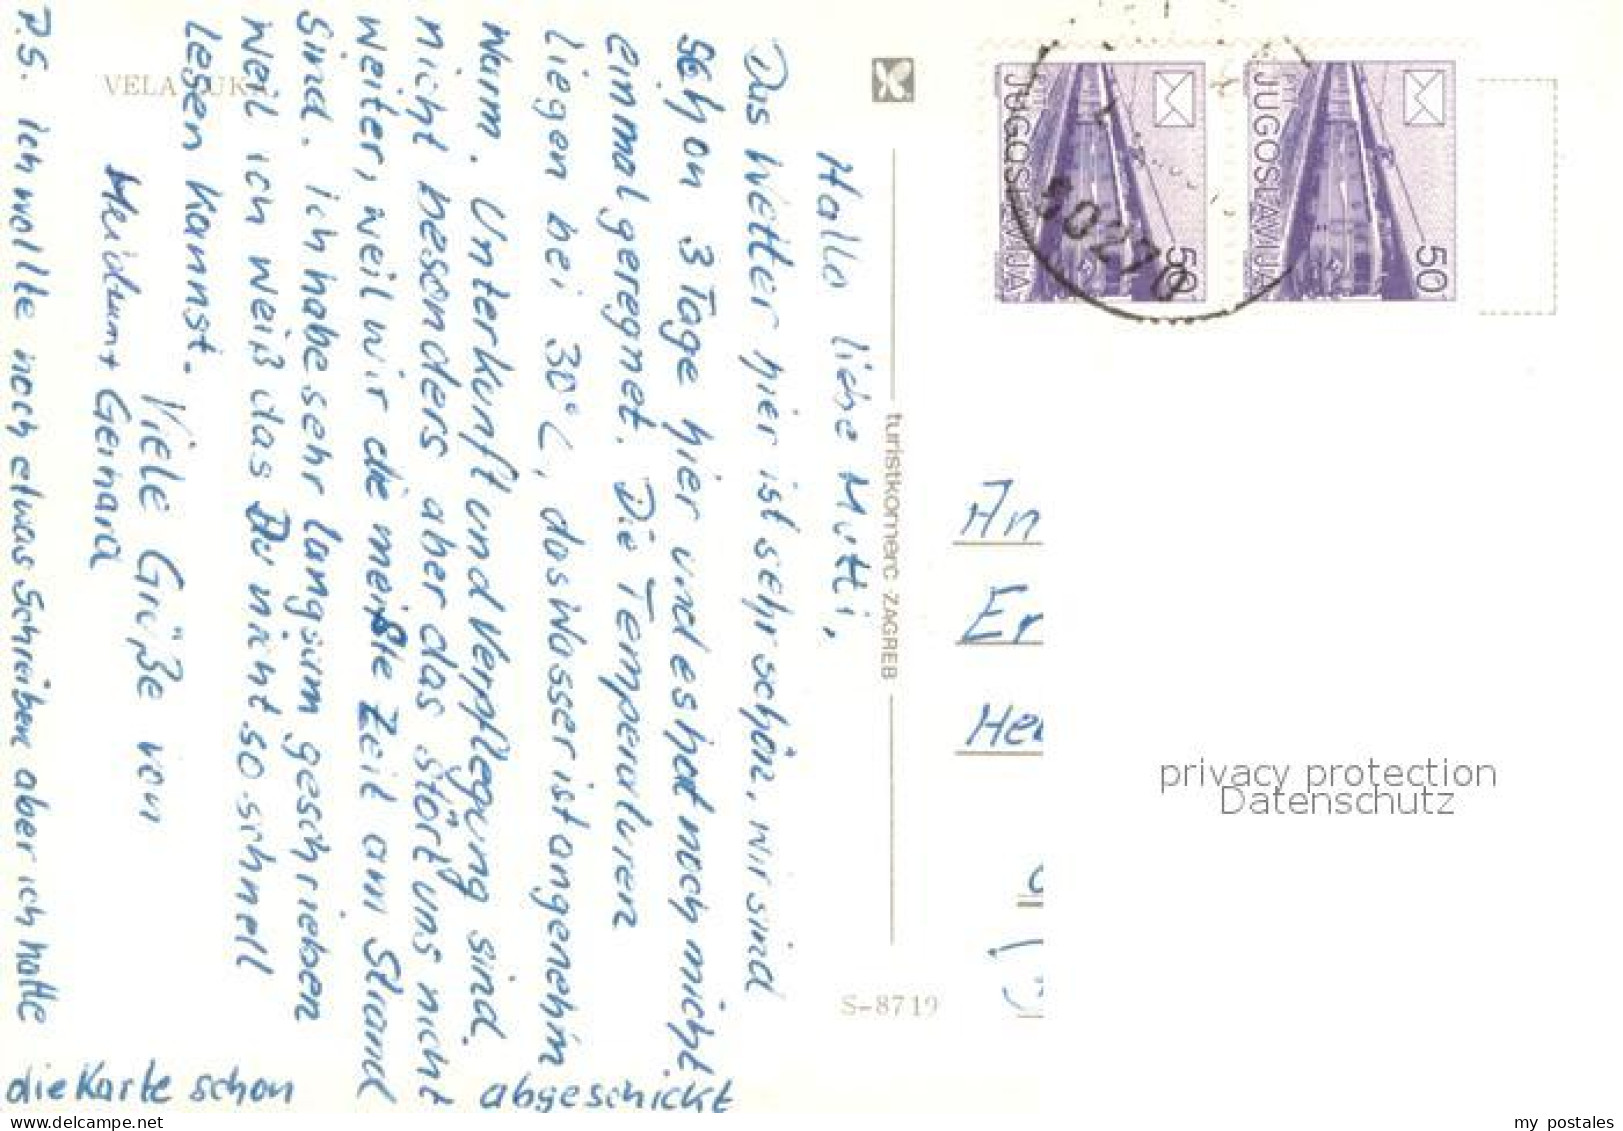 Hallo liebe Mutti,
Das Wetter hier ist sehr schön, wir sind
schon 3 Tage hier und es hat noch nicht
einmal geregnet. Die Temperaturen
liegen bei 30°C, das Wasser ist angenehm
warm. Unterkunft und Verpflegung sind
nicht besonders aber das stört uns nicht
weiter, weil wir die meißte Zeit am Strand
sind. ich habe sehr langsam geschrieben
weil ich weiß das Du nicht so schnell
lesen kannst.
Viele Grüße von
Gerhard
P.S. ich wollte noch etwas Schreiben aber ich hatte
die Karte schon abgeschickt
VELA LUKA
turistkomerc ZAGREB
S-8719
PTT
JUGOSLAVIJA
50
PTT
JUGOSLAVIJA
50
50270
An
Er
Hei
privacy protection
Datenschutz
my postales